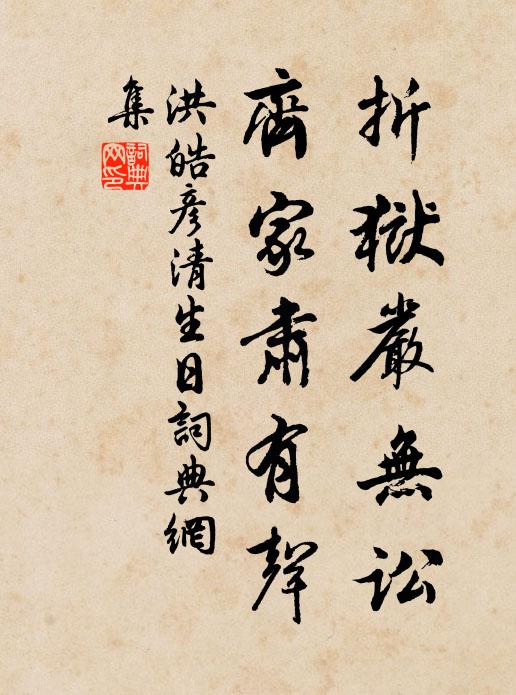 折獄嚴無訟
齊家肅有聲
洪皓彥清生日詞典網
集
詞典
网印